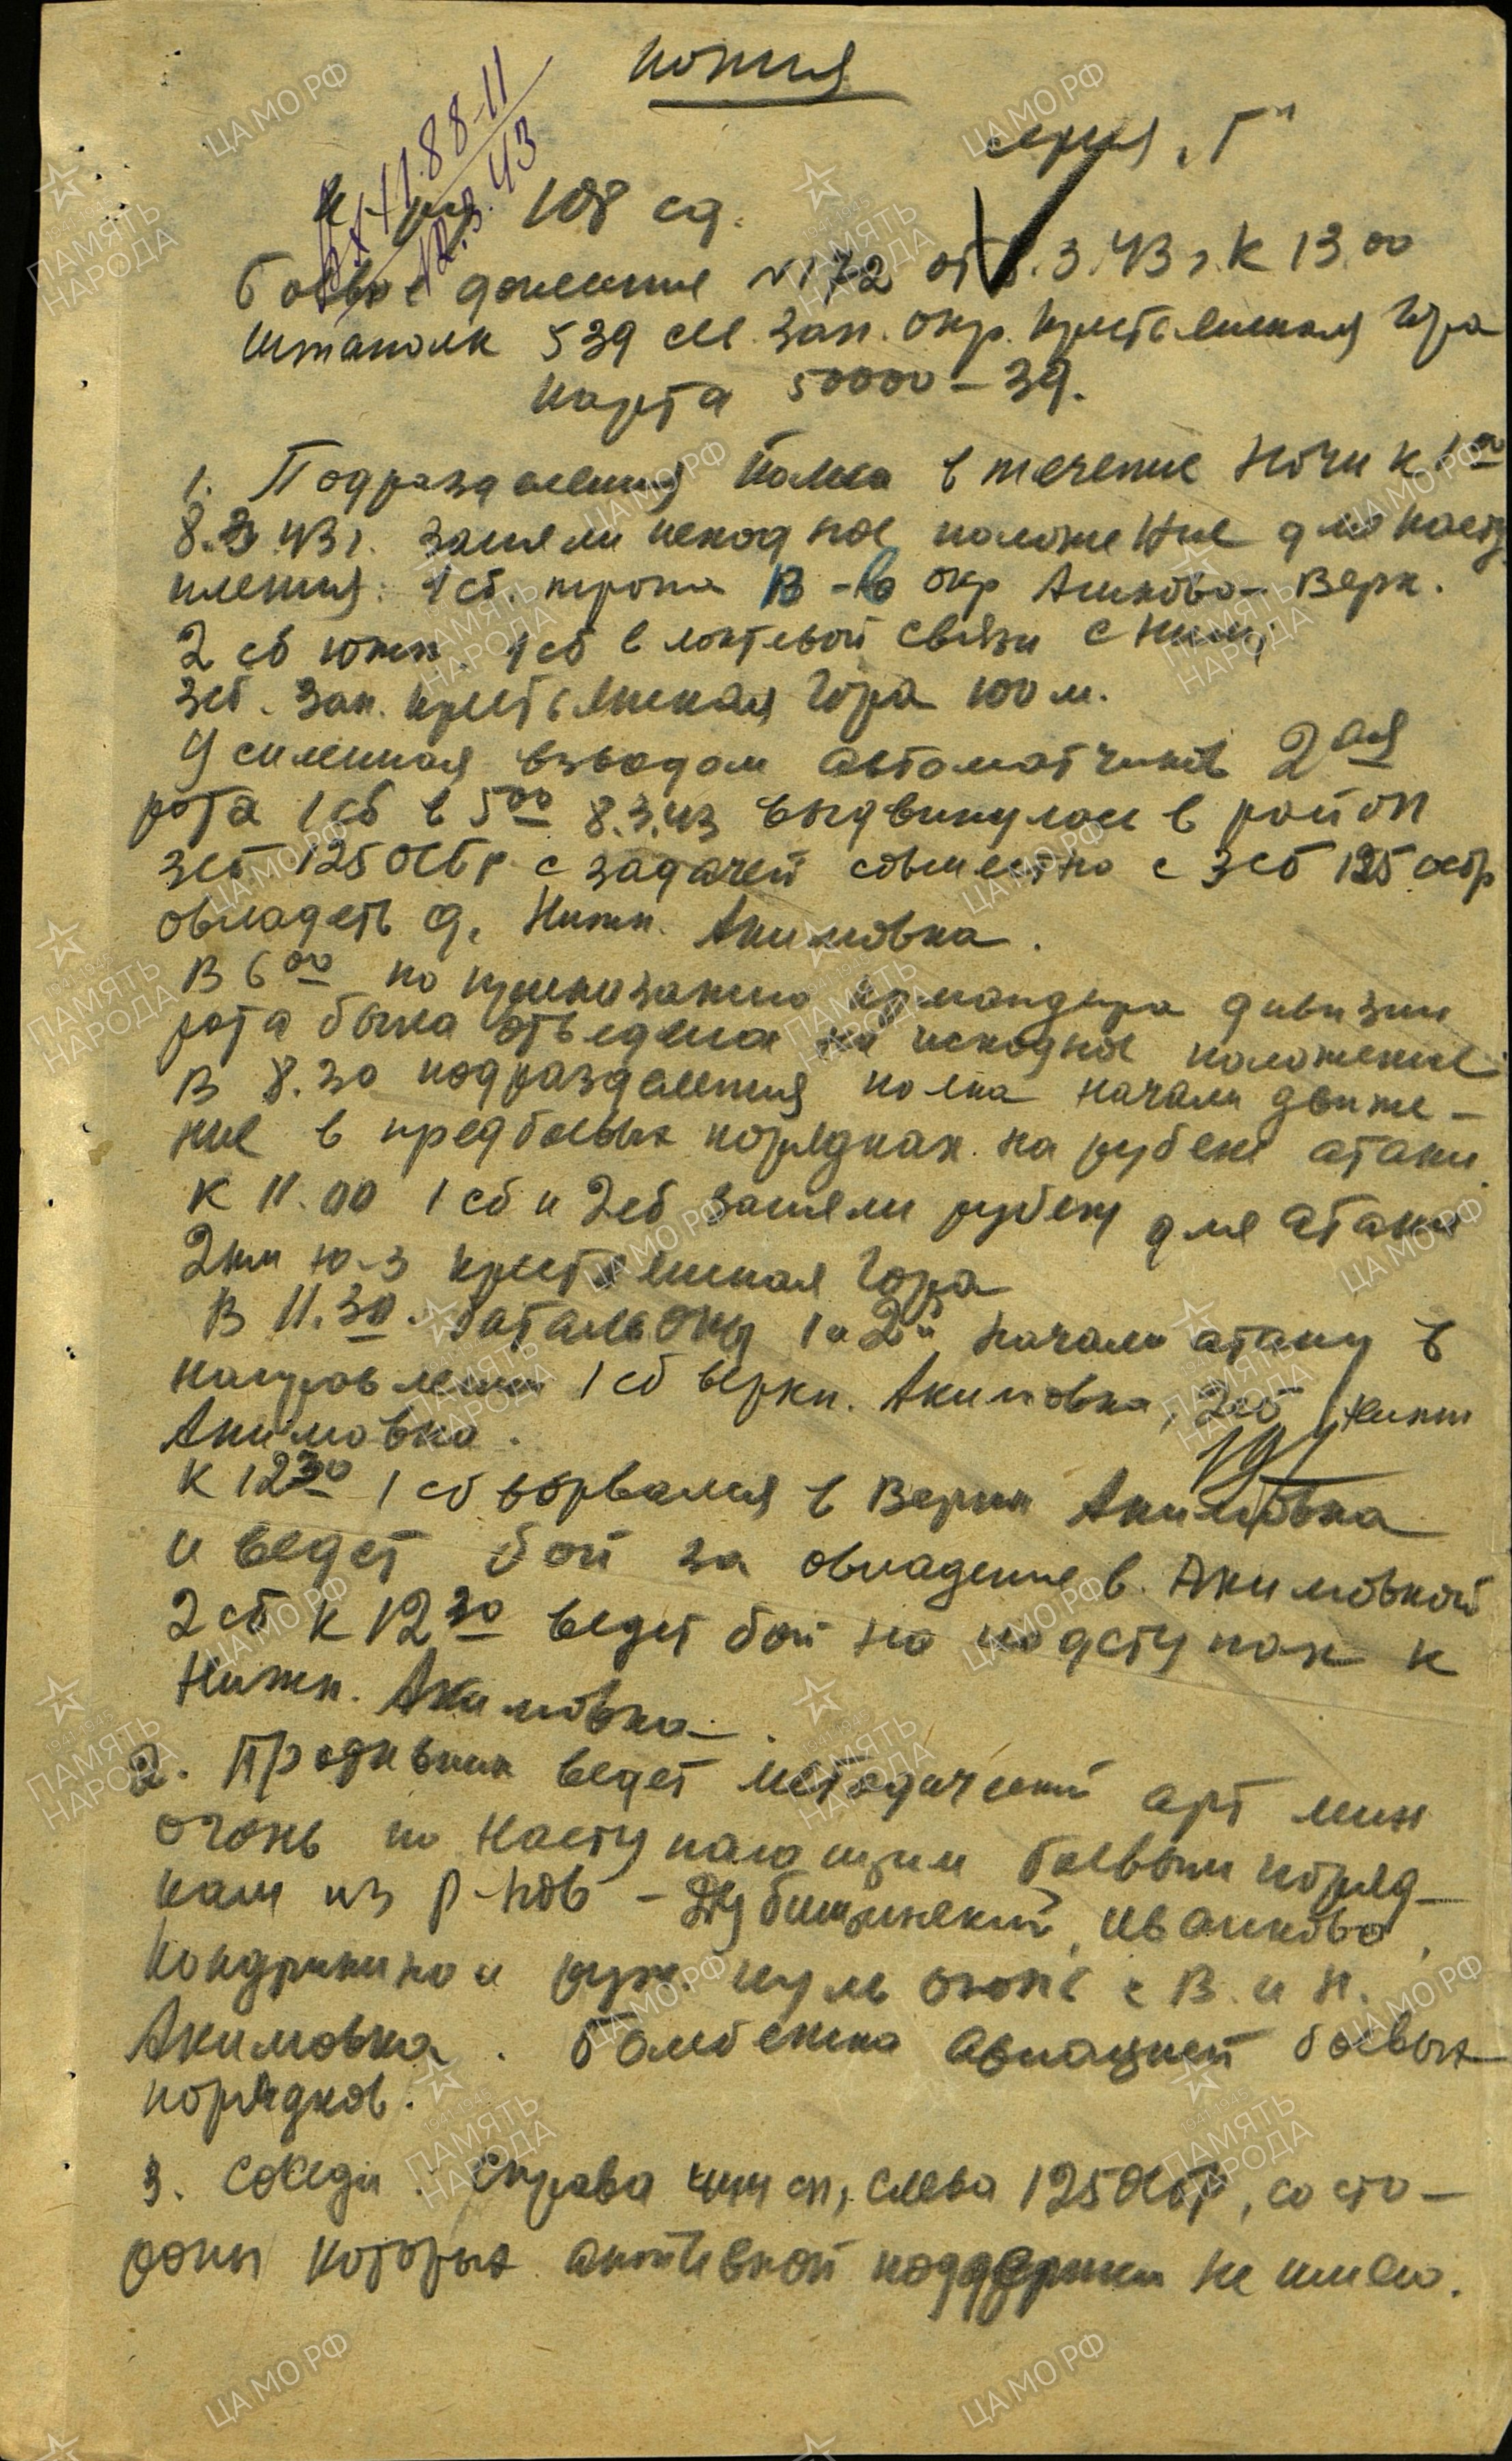 Копия
серия "Г"
Вх 11.88-11
12.3.43
К-ру 108 сд.
Боевое донесение №172 от 8.3.43 г. К 13.00
Штаполк 539 сп. Зап. окр. Крестьянская Гора
Карта 50000-39.
1. Подразделения полка в течение ночи к
8.3.43 г. заняли исходное положение для насту
пления: 1 сб. тропа В-в окр Ашково-Верх.
2 сб южн. 1 сб в локтевой связи с ним,
3 сб. Зап. Крестьянская Гора 100 м.
Усиленная взводом автоматчиков 2ая
рота 1 сб в 5 00 8.3.43 выдвинулась в район
3 сб 125 осбр с задачей совместно с 3 сб 125 осбр
овладеть д. Нижн. Акимовка.
В 6 00 по приказанию командира дивизии
рота была отведена на исходное положение.
В 8.30 подразделения полка начали движе-
ние в предбоевых порядках на рубеж атаки
К 11.00 1 сб и 2 сб заняли рубеж для атаки
2 км ю-з Крестьянская Гора
В 11.30 батальоны 1 и 2й начали атаку в
направлении 1 сб верхн. Акимовка, 2 сб Нижн
Акимовка.
К 12 30 1 сб ворвался в Верхн Акимовка
и ведет бой за овладение в. Акимовкой
2 сб к 12 30 ведет бой на подступах к
Нижн. Акимовка.
2. Противник ведет методический арт мин
огонь по наступающим боевым поряд-
кам из р-нов - Дубищенский, Иванково,
Кондрыкино и руж. пул огонь с В. и Н.
Акимовка. Бомбежка авиацией боевых
порядков.
3. Соседи: справа 444 сп, слева 125 осбр, со сто-
роны которых активной поддержки не имею.